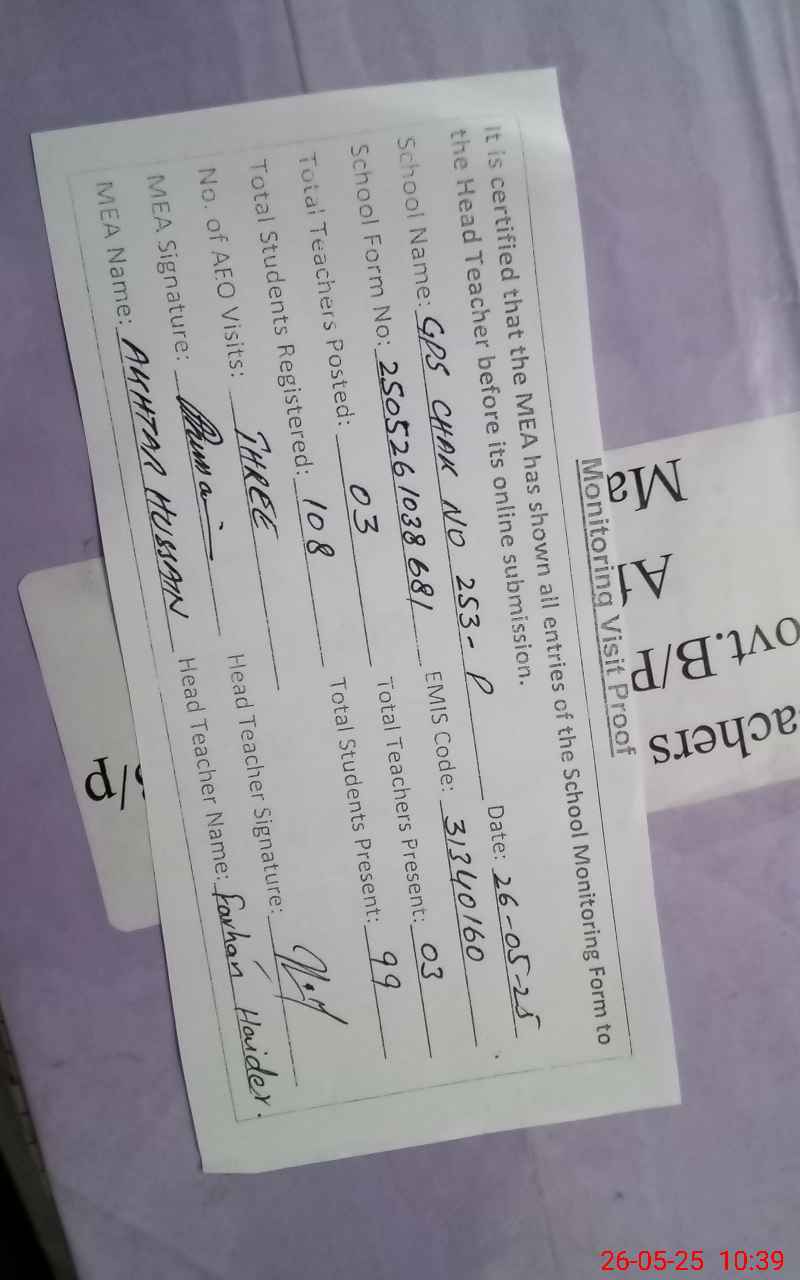 Monitoring Visit Proof
It is certified that the MEA has shown all entries of the School Monitoring Form to
the Head Teacher before its online submission.
Date: 26-05-25
School Name: GPS CHAK NO 253-P
School Form No: 2505261038681 EMIS Code: 31340160
Total Teachers Posted: 03 Total Teachers Present: 03
Total Students Registered: 108 Total Students Present: 99
No. of AEO Visits: THREE
MEA Signature: Head Teacher Signature:
MEA Name: AKHTAR HUSSAIN Head Teacher Name: Farhan Haider.
Ma
ovt.B/P
achers
/P
26-05-25 10:39